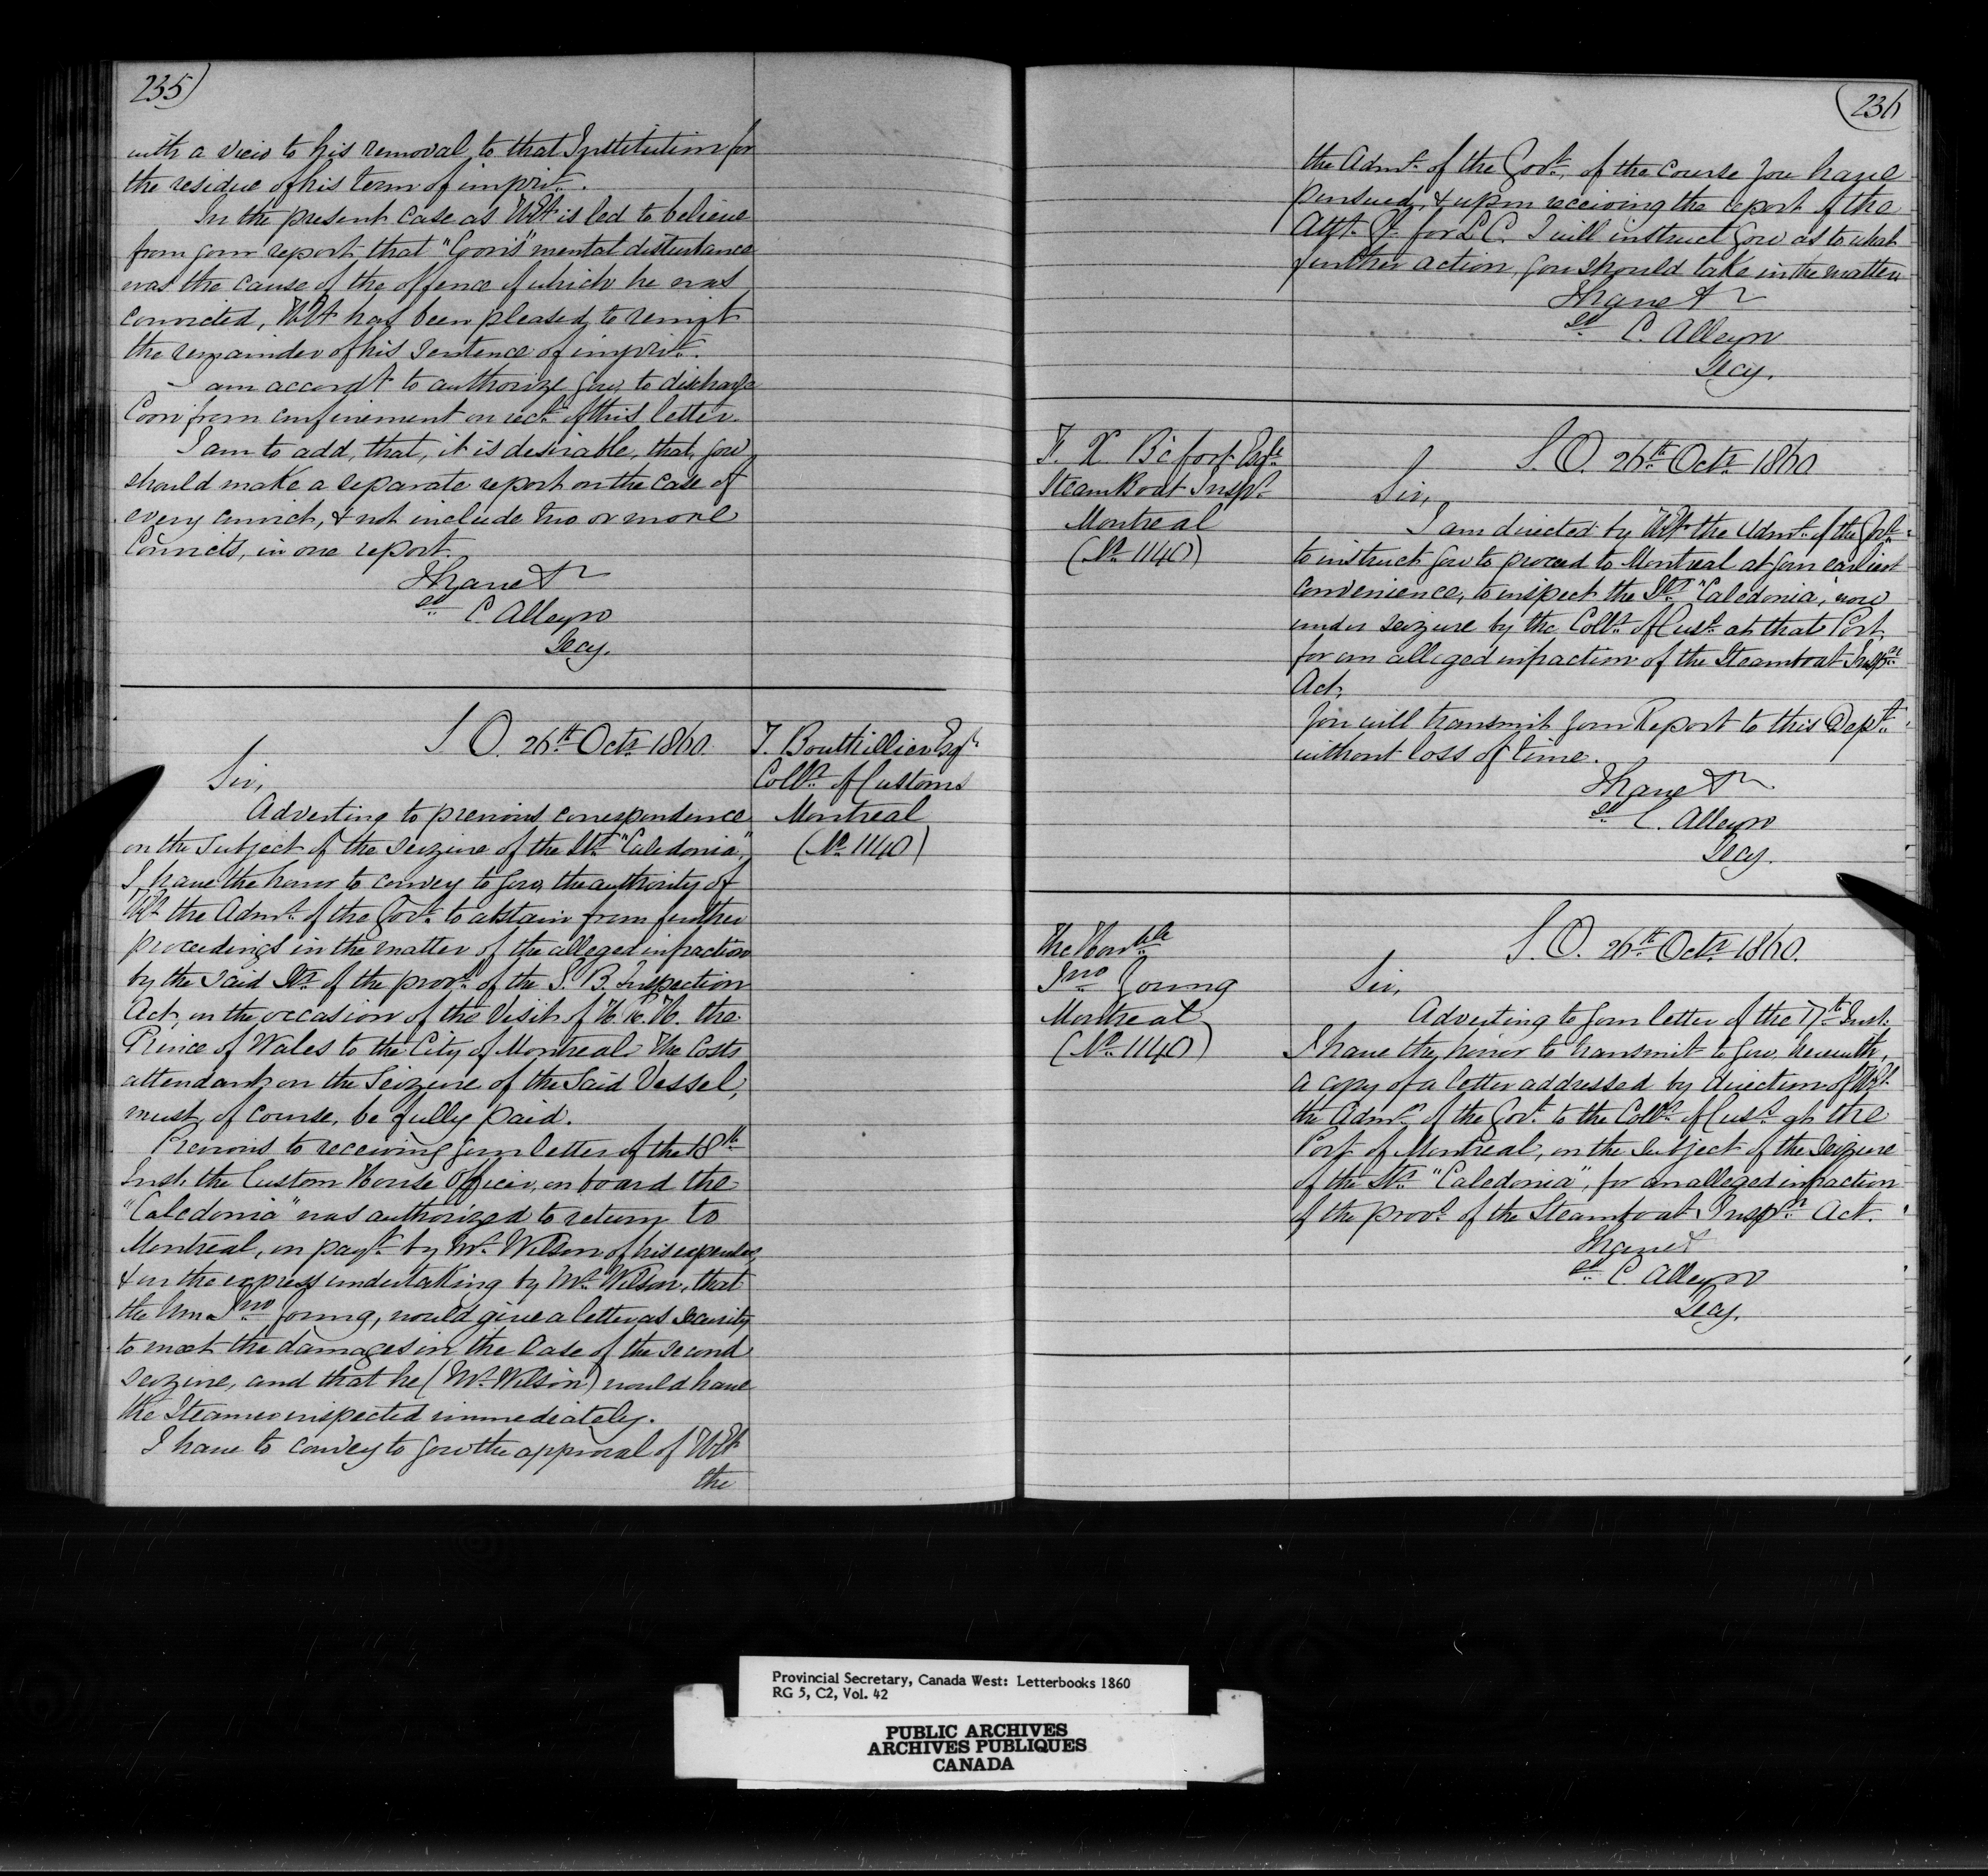 235)
with a view to his removal to that Institution for
the residue of his term of imprt.
In the present case as HE is led to believe
from your report that "Coon's" mental disturbance
was the cause of the offence of which he was
convicted, HE has been pleased to remit
the remainder of his sentence of imprt.
I am accordt to authorize you to discharge
Coon from confinement on rect of this letter.
I am to add, that, it is desirable, that, you
should make a separate report on the case of
every convict, & not include two or more
Convicts, in one report.
I have &c
sd C. Alleyn
Secy.
S. O. 26th Octr 1860.
T. Bouthillier Esqr
Collr of Customs
Montreal
(No 1140)
Sir,
Adverting to previous correspondence
on the subject of the seizure of the Str "Caledonia",
I have the honor to convey to you, the authority of
HE the Admr of the Govt to abstain from further
proceedings in the matter of the alleged infraction
by the said Str of the provs of the S. B. Inspection
Act, on the occasion of the visit of H. R. H. the
Prince of Wales to the City of Montreal. The costs
attendant on the Seizure of the Said Vessel,
must, of course, be fully paid.
Previous to receiving your letter of the 18th
Inst, the Custom House Officer, on board the
"Caledonia" was authorized to return to
Montreal, on payt by Mr Wilson of his expenses,
& on the express undertaking by Mr Wilson, that
the Hon Jno Young, would give a letter as Security
to meet the damages in the Case of the second
seizure, and that he (Mr Wilson) would have
the Steamer inspected immediately.
I have to convey to you the approval of HE
the
236
the Admr of the Govt, of the course you have
pursued, & upon receiving the report of the
Atty. Gl for L. C. I will instruct you as to what
further action you should take in the matter
I have &c
sd C. Alleyn
Secy.
F. X. Esqre
Steam Boat Inspr
Montreal
(No 1140)
S. O. 26th Octr 1860
Sir,
I am directed by HE the Admr of the Govt
to instruct you to proceed to Montreal at your earliest
convenience, to inspect the Str "Caledonia", now
under seizure by the Collr of Cust at that Port,
for an alleged infraction of the Steamboat Inspn
Act,
You will transmit your Report to this Dept
without loss of time.
I have &c
sd C. Alleyn
Secy.
The Honble
Jno Young
Montreal
(No 1140)
S. O. 26th Octr 1860.
Sir,
Adverting to your letter of the 17th Inst.
I have the honor to transmit to you, herewith,
a copy of a letter addressed by direction of HE
the Admr of the Govt to the Collr of Cust at the
Port of Montreal, on the subject of the seizure
of the Str "Caledonia", for an alleged infraction
of the provs of the Steamboat Inspn Act.
I have &c
sd C Alleyn
Secy.
Provincial Secretary, Canada West: Letterbooks 1860
RG 5, C2, Vol. 42
PUBLIC ARCHIVES
ARCHIVES PUBLIQUES
CANADA